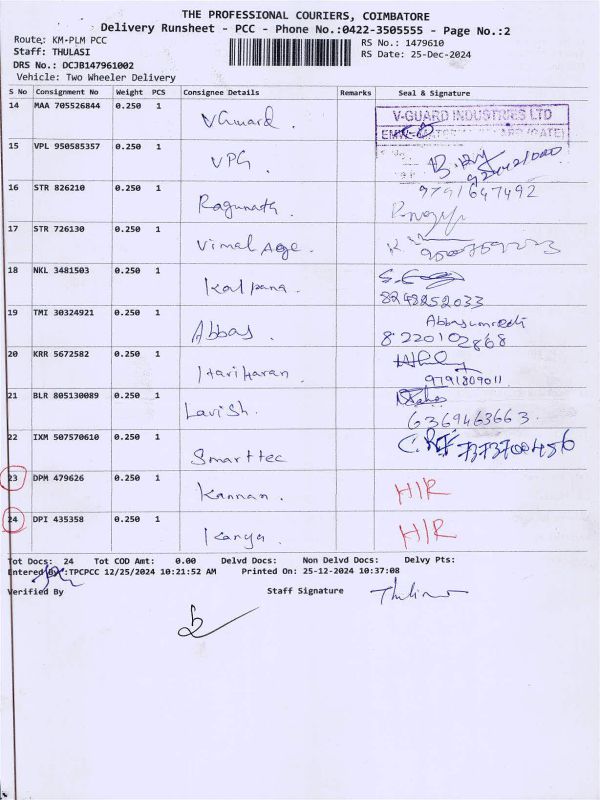 THE PROFESSIONAL COURIERS, COIMBATORE
Delivery Runsheet - PCC - Phone No.:0422-3505555 - Page No.:2
Route: KM-PLM PCC
RS No.: 1479610
Staff: THULASI
RS Date: 25-Dec-2024
DRS No.: DCJB147961002
Vehicle: Two Wheeler Delivery
S No Consignment No Weight PCS Consignee Details Remarks Seal & Signature
14 MAA 705526844 0.250 1 VGuard. V-GUARD INDUSTRIES LTD
15 VPL 950585357 0.250 1 VPG.
16 STR 826210 0.250 1 Ragunath. 9791647492
17 STR 726130 0.250 1 Vimal Age.
18 NKL 3481503 0.250 1 Kalpana.
8248252033
19 TMI 30324921 0.250 1 Abbas. 8220102868
20 KRR 5672582 0.250 1 Hariharan. 9791809011
21 BLR 805130089 0.250 1 Lavish. 6369463663.
22 IXM 507570610 0.250 1 Smarttec 7373700456
23 DPM 479626 0.250 1 Kannan. H/R
24 DPI 435358 0.250 1 Kanya. H/R
Tot Docs: 24 Tot COD Amt: 0.00 Delvd Docs: Non Delvd Docs: Delvy Pts:
Entered By :TPCPCC 12/25/2024 10:21:52 AM Printed On: 25-12-2024 10:37:08
Verified By Staff Signature